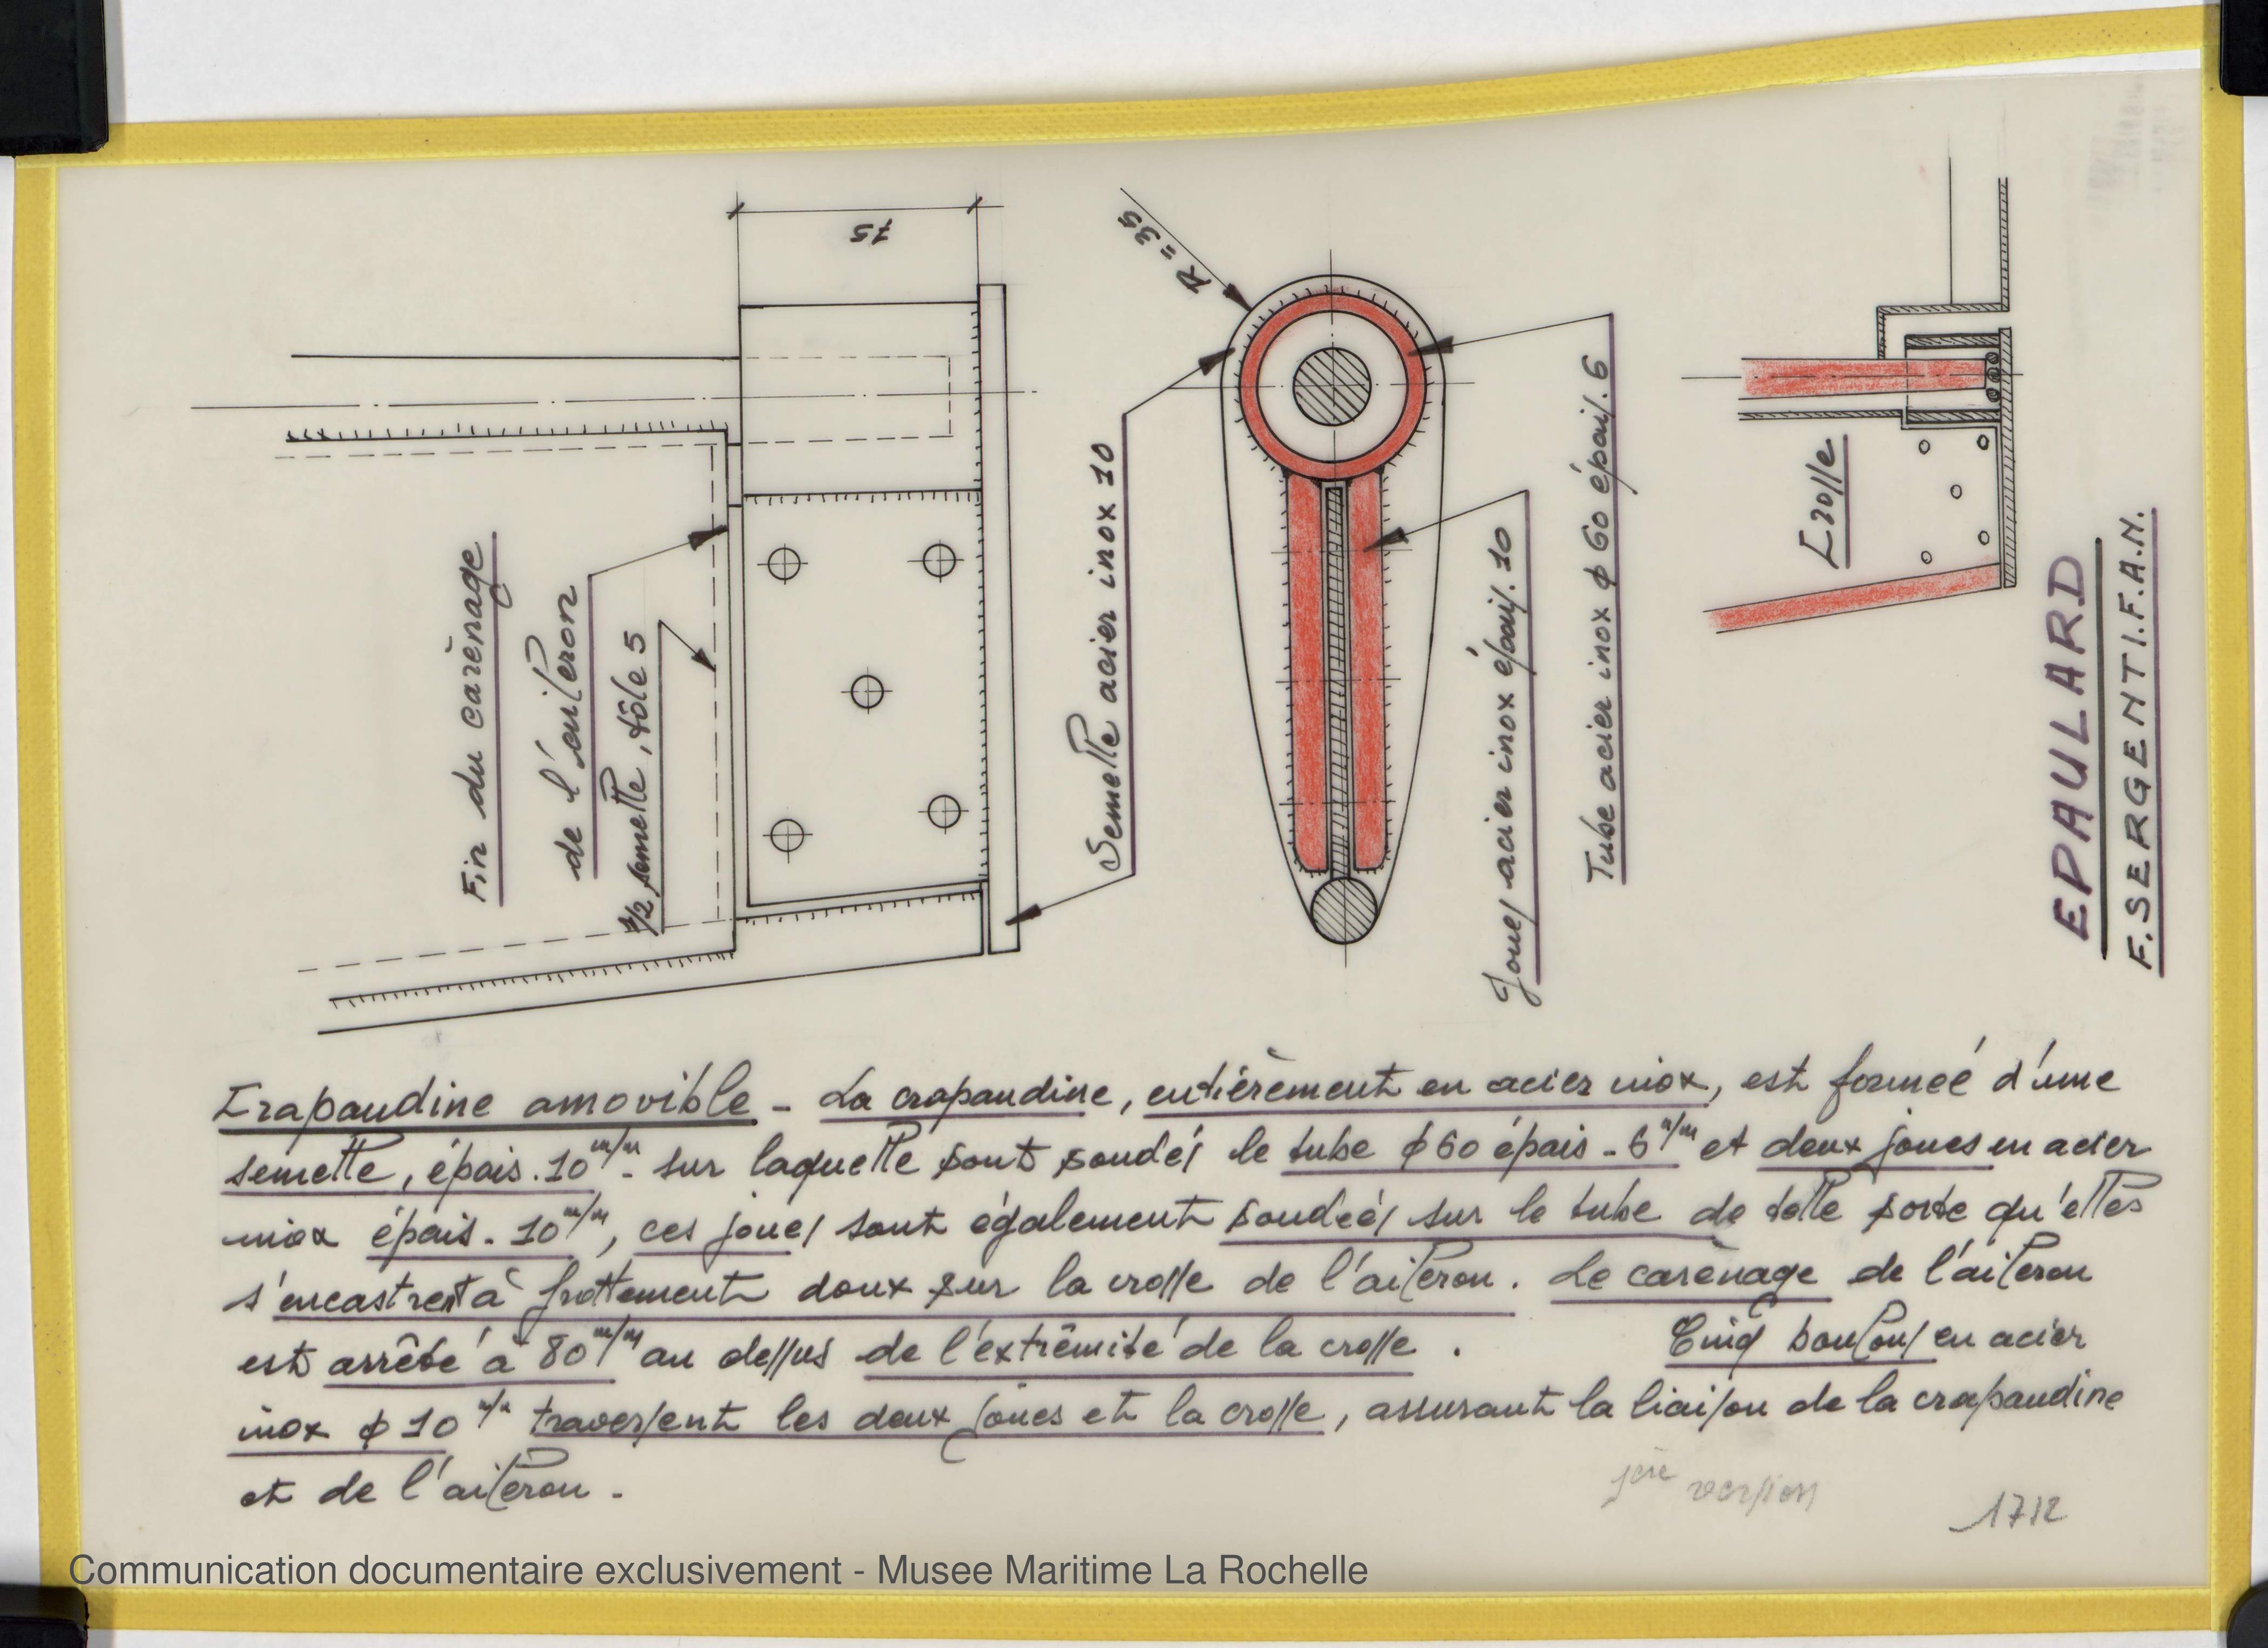 75
R = 35
Fin du carènage
de l'aileron
1/2 semelle, tôle 5
Semelle acier inox 10
Joues acier inox épais. 10
Tube acier inox ϕ 60 épais. 6
Crosse
EPAULARD
F. SERGENT I.F.A.M.
Crapaudine amovible - La crapaudine, entièrement en acier inox, est formée d'une
semelle, épais. 10 m/m - sur laquelle sont soudés le tube ϕ 60 épais - 6 m/m et deux joues en acier
inox épais. 10 m/m, ces joues sont également soudées sur le tube de telle sorte qu'elles
s'encastrent à frottement doux sur la crosse de l'aileron. Le carènage de l'aileron
est arrêté à 80 m/m au dessus de l'extrêmité de la crosse. Cinq boulons en acier
inox ϕ 10 m/m traversent les deux joues et la crosse, assurant la liaison de la crapaudine
et de l'aileron -
1ère version
1712
Communication documentaire exclusivement - Musee Maritime La Rochelle